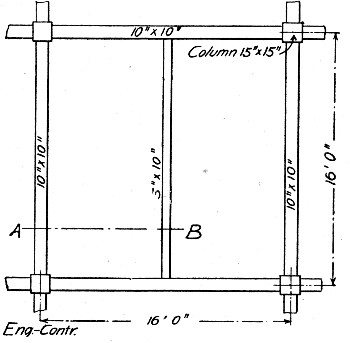 10"x10"
Column 15"x15"
10"x10"
3"x10"
10"x10"
16'0"
A
B
16'0"
Eng-Contr.